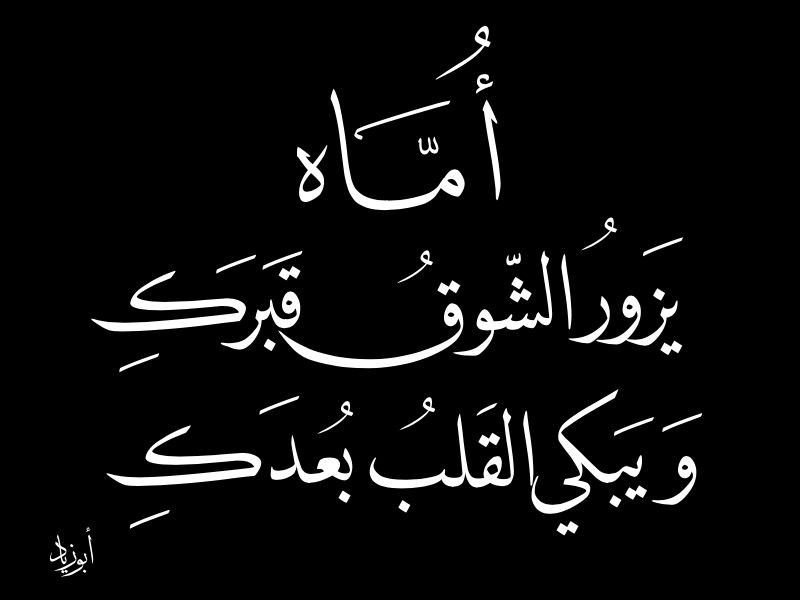 أُمَّاهُ
يَزورُ الشّوقُ قَبَرَكِ
وَ يَبَكي القَلبُ بُعدَكِ
أبو زياد